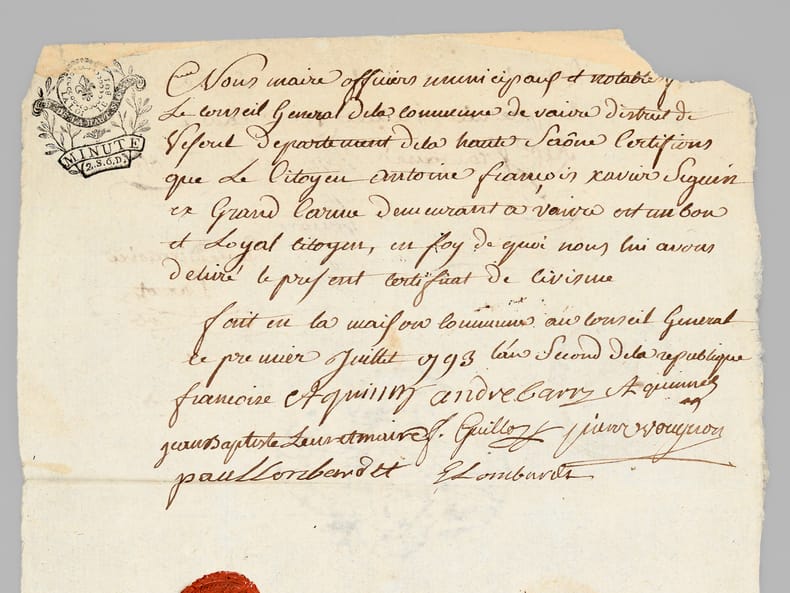 MINUTE
2.S.6.D.
Nous maire officiers municipaux et notables
Le Conseil General de la commune de vaivre district de
Vesoul Departement de la haute Saône Certifions
que Le Citoyen antoine françois xavier Seguin
ex Grand Carme demeurant a vaivre est un bon
et Loyal Citoyen, en foy de quoi nous lui avons
delivré le present certificat de Civisme
fait en la maison Commune au Conseil General
ce premier Juillet 1793 l'an Second de la republique
françoise andre barry
jean Baptiste maire J. Guilloz pierre
paul Lombardet Lombardet